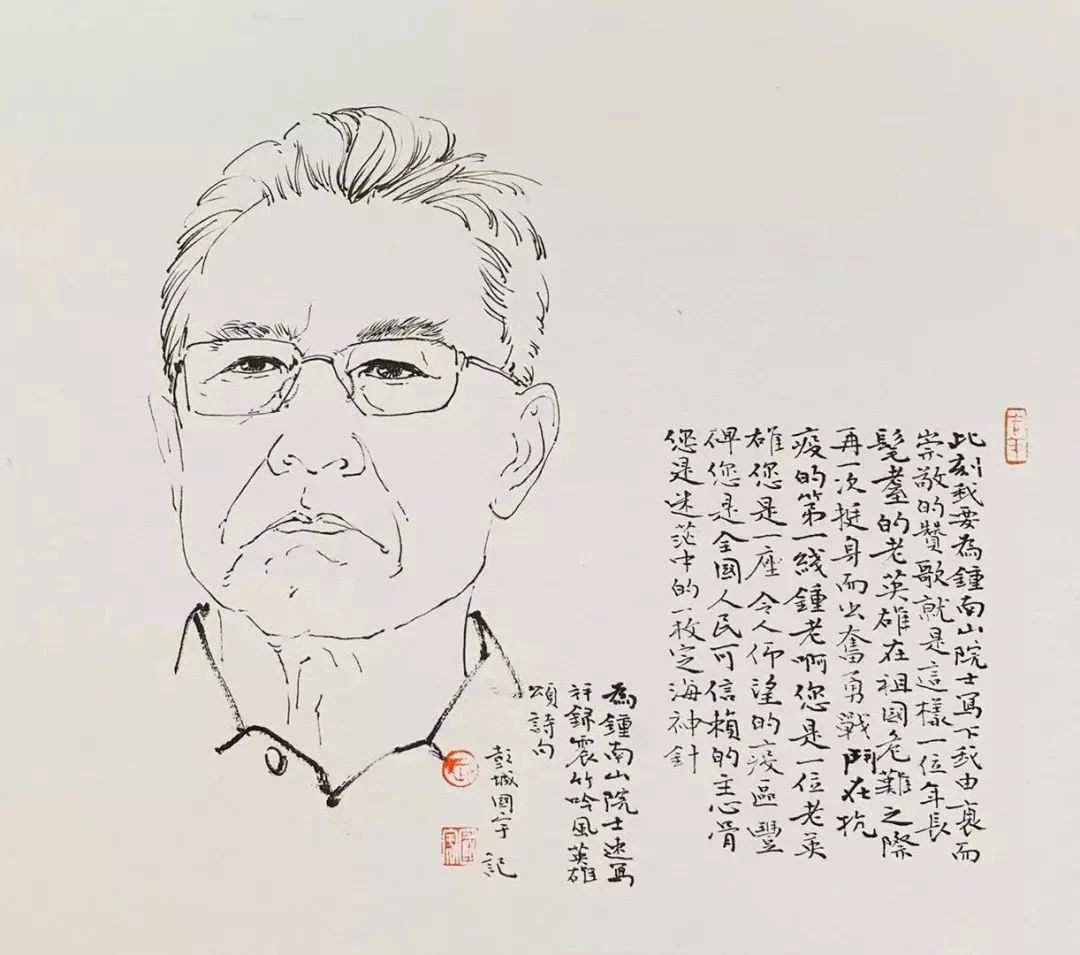 此刻我要為鍾南山院士寫下我由衷而
崇敬的贊歌就是這樣一位年長
髦耋的老英雄在祖國危難之際
再一次挺身而出奮勇戰鬥在抗
疫的第一綫鍾老啊您是一位老英
雄您是一座令人仰望的疫區豐
碑您是全國人民可信賴的主心骨
您是迷茫中的一枚定海神針
為鍾南山院士速寫
震竹吟風英雄
頌詩句
彭城国宇 記